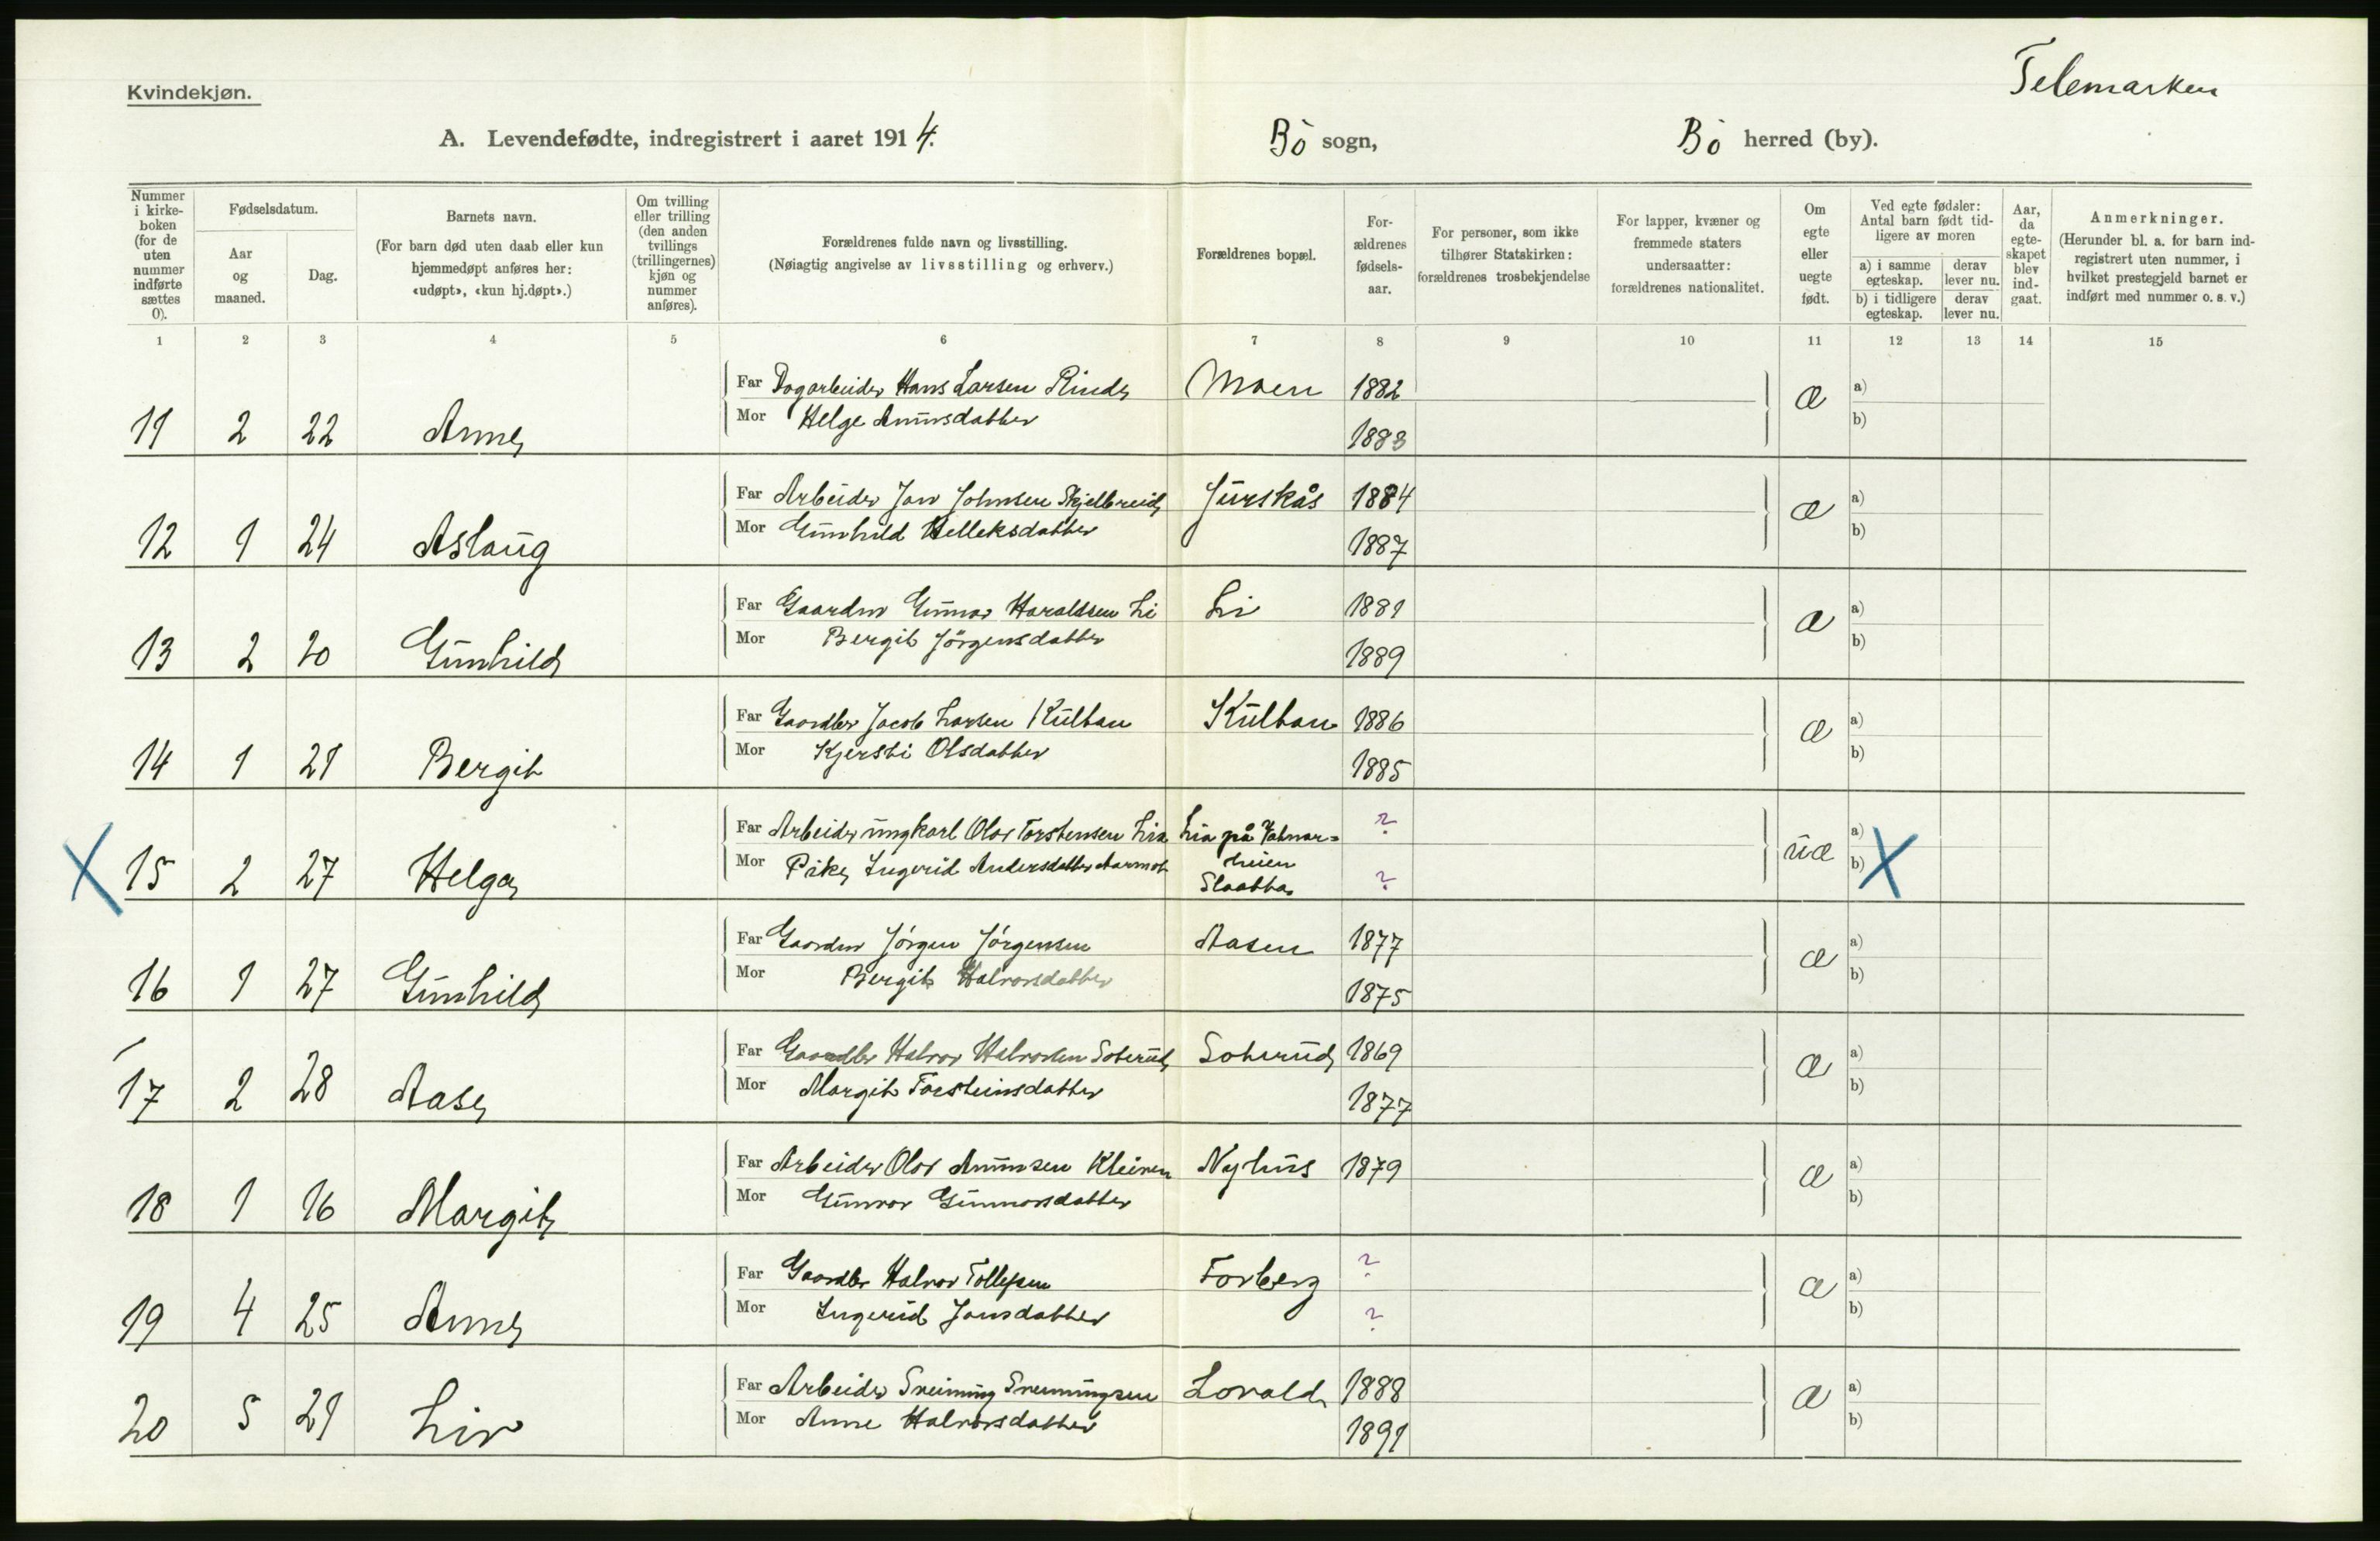 Telemarken
Kvindekjøn.
A. Levendefødte, indregistrert i aaret 1914. Bö sogn, Bö herred (by).
Nummer i kirkeboken (for de uten nummer indførte sættes 0).
Fødselsdatum.
Aar og maaned.
Dag.
Barnets navn.
(For barn død uten daab eller kun hjemmedøpt anføres her: «udøpt», «kun hj.døpt».)
Om tvilling eller trilling (den anden tvillings (trillingernes) kjøn og nummer anføres).
Forældrenes fulde navn og livsstilling.
(Nøiagtig angivelse av livsstilling og erhverv.)
Forældrenes bopæl.
Forældrenes fødselsaar.
For personer, som ikke tilhører Statskirken: forældrenes trosbekjendelse
For lapper, kvæner og fremmede staters undersaatter: forældrenes nationalitet.
Om egte eller uegte født.
Ved egte fødsler: Antal barn født tidligere av moren
a) i samme egteskap.
derav lever nu.
b) i tidligere egteskap.
derav lever nu.
Aar, da egteskapet blev indgaat.
Anmerkninger.
(Herunder bl. a. for barn indregistrert uten nummer, i hvilket prestegjeld barnet er indført med nummer o. s. v.)
1 2 3 4 5 6 7 8 9 10 11 12 13 14 15
Far Dagarbeider Hans Larsen Moen 1882 a)
Mor Helge b)
11 2 22 Anne 1883 æ
Far Arbeider Jon Johnsen Skjelbreid Jurskås 1884 a)
Mor Gunhild Helleksdatter b)
12 1 24 Aslaug 1887 æ
Far Gaardbr Gunnar Haraldsen Li Li 1881 a)
Mor Bergit Jörgensdatter b)
13 2 20 Gunhild 1889 æ
Far Gaardbr Jacob Larsen Kultan Kultan 1886 a)
Mor Kjersti Olsdatter b)
14 1 21 Bergit 1885 æ
Far Arbeider ungkarl Olav Torstensen Lia Lia på ? a)
Mor Pike Ingerid Andersdatter b)
X 15 2 27 Helga ? uæ X
Far Gaardbr Jörgen Jörgensen Aasen 1877 a)
Mor Bergit Halvorsdatter b)
16 1 27 Gunhild 1875 æ
Far Gaardbr Halvor Halvorsen Soterud Soterud 1869 a)
Mor Margit Torsteinsdatter b)
17 2 28 Aase 1877 æ
Far Arbeider Olav Amunsen Kleiven Nyhus 1879 a)
Mor Gunvor Gunnarsdatter b)
18 1 16 Margit æ
Far Gaardbr Halvor Tollefsen Forberg ? a)
Mor Ingerid Jonsdatter ? b)
19 4 25 Anne æ
Far Arbeider Sveinung Sveinungsen Lovald 1888 a)
Mor Anne Halvorsdatter b)
20 5 21 Liv 1891 æ